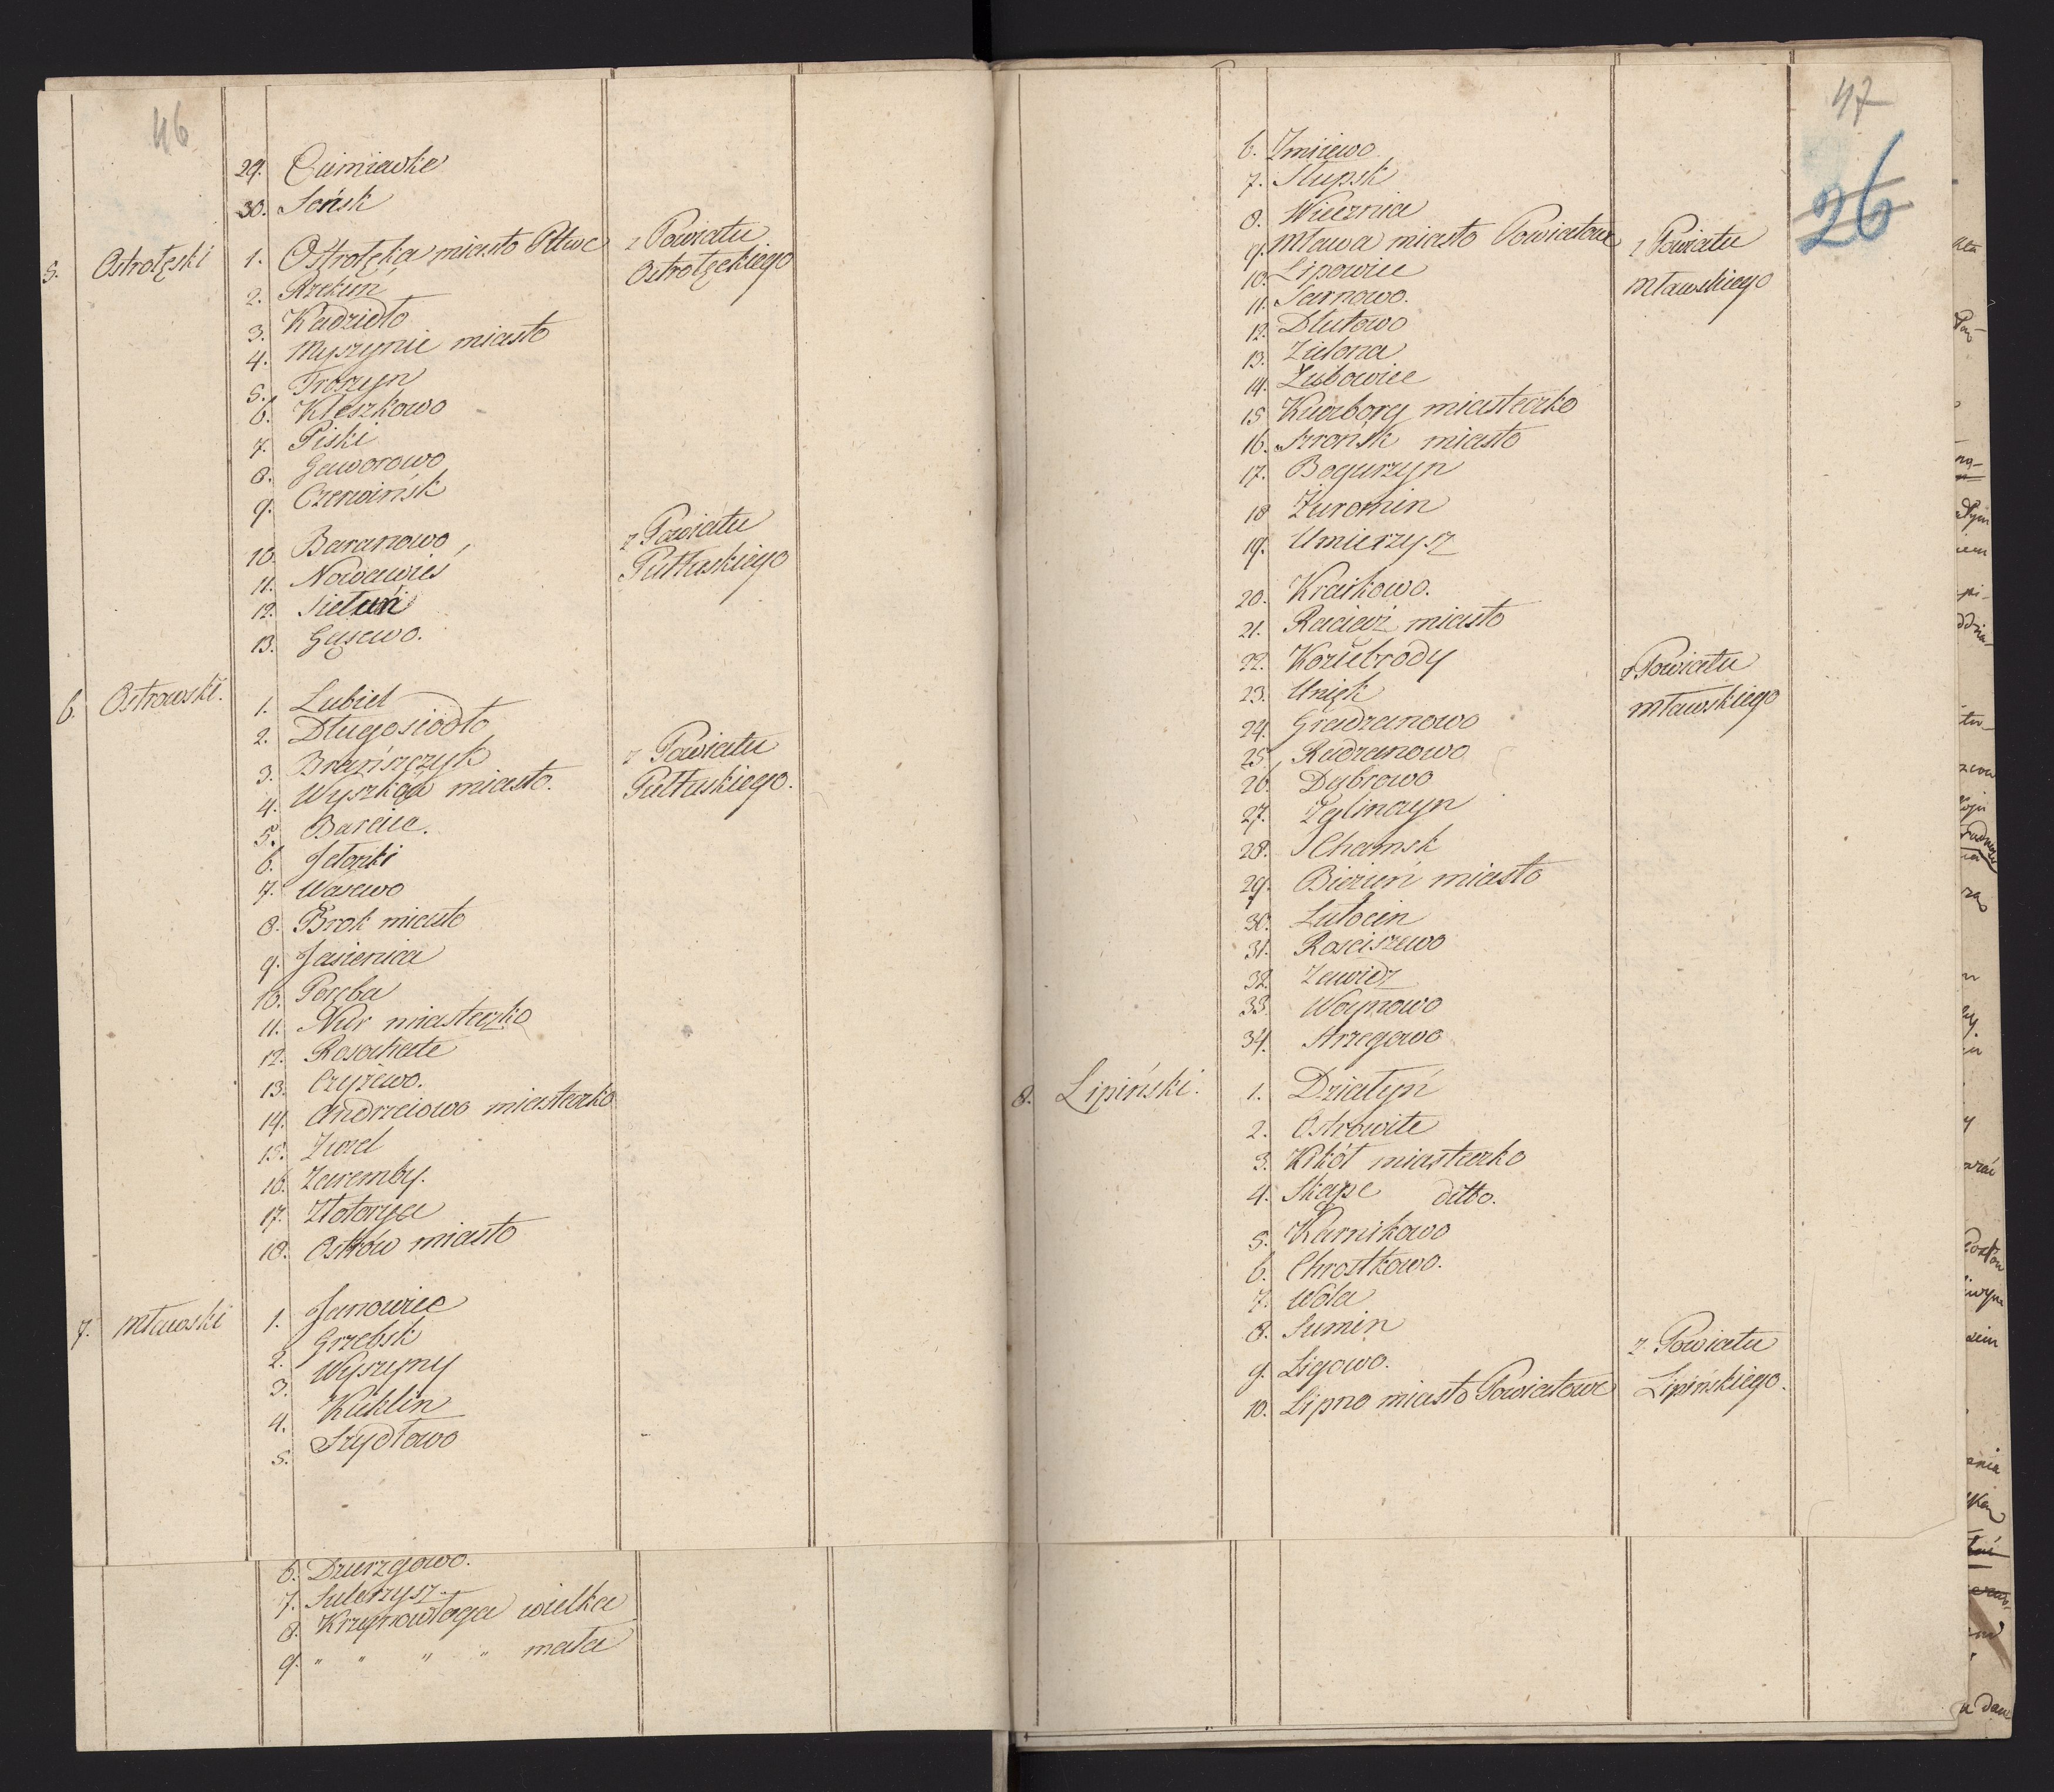 46
29. Ciemiewko
30. Sońsk
5. Ostrołęski
1. Ostrołęka miasto Pttwe
z Powiatu
Ostrołęckiego
2. Rzekuń
3. Kadzidło
4. Myszynie miasto
5. Troszyn
6. Kleszkowo
7. Piski
8. Goworowo
9. Czerwińsk
10. Baranowo
z Powiatu
Pułtuskiego
11. Nowawieś
12. Sieluń
13. Gąsewo.
6. Ostrowski.
1. Lubiel
2. Długosiodło
3. Brańszczyk
z Powiatu
Pułtuskiego.
4. Wyszków miasto.
5. Barcice.
6. Jelonki
7. Wąsewo
8. Brok miasto
9. Jasienica
10. Poręba
11. Nur miasteczko
12. Rosochate
13. Czyżewo.
14. Andrzeiowo miasteczko
15. Zuzel
16. Zaremby.
17. Złotorya
18. Ostrów miasto
7. Mławski
1. Janowiec
2. Grzebsk
3. Wyszyny
4. Kuklin
5. Szydłowo
6. Dzierzgowo.
7. Sulerzysz
8. Krzynowłoga wielka
9. " " " " mała
47
26
6. Zmiiewo
7. Słupsk
8. Wiecznia
9. Mława miasto Powiatowe
z Powiatu
Mławskiego
10. Lipowiec
11. Sarnowo.
12. Dłutowo
13. Zielona
14. Lubowiec
15 Kuczbory miasteczko
16. Szrońsk miasto
17. Bogurzyn
18 Żuromin
19. Unierzysz
20. Kraszkowo.
21. Raciąż miasto
22. Koziebrody
z Powiatu
Mławskiego
23. Unięk
24. Gradzanowo
25. Radzanowo
26. Dąbrowo
27. Żelinayn
28. Chamsk
29. Bieżuń miasto
30. Lutocin
31. Rościszewo
32. Zawidz
33. Woynowo
34. Strzegowo
8. Lipiński.
1. Działyń
2. Ostrowite
3. Kikół miasteczko
4. Skąpe ditto.
5. Karnikowo
6. Chrostkowo.
7. Wola
8. Sumin
9. Ligowo.
10. Lipno miasto Powiatowe
z Powiatu
Lipińskiego.